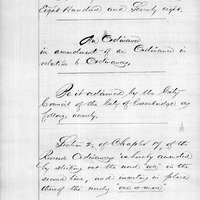 Eight hundred and Seventy eight.
An Ordinance
in amendment of an Ordinance in
relation to Ordinances.
Be it ordained by the City
Council of the City of Cambridge as
follows, namely,
Section 2, of Chapter 17, of the
Revised Ordinances is hereby amended
by striking out the word "all" in the
second line, and inserting in place
thereof the words "one or more"